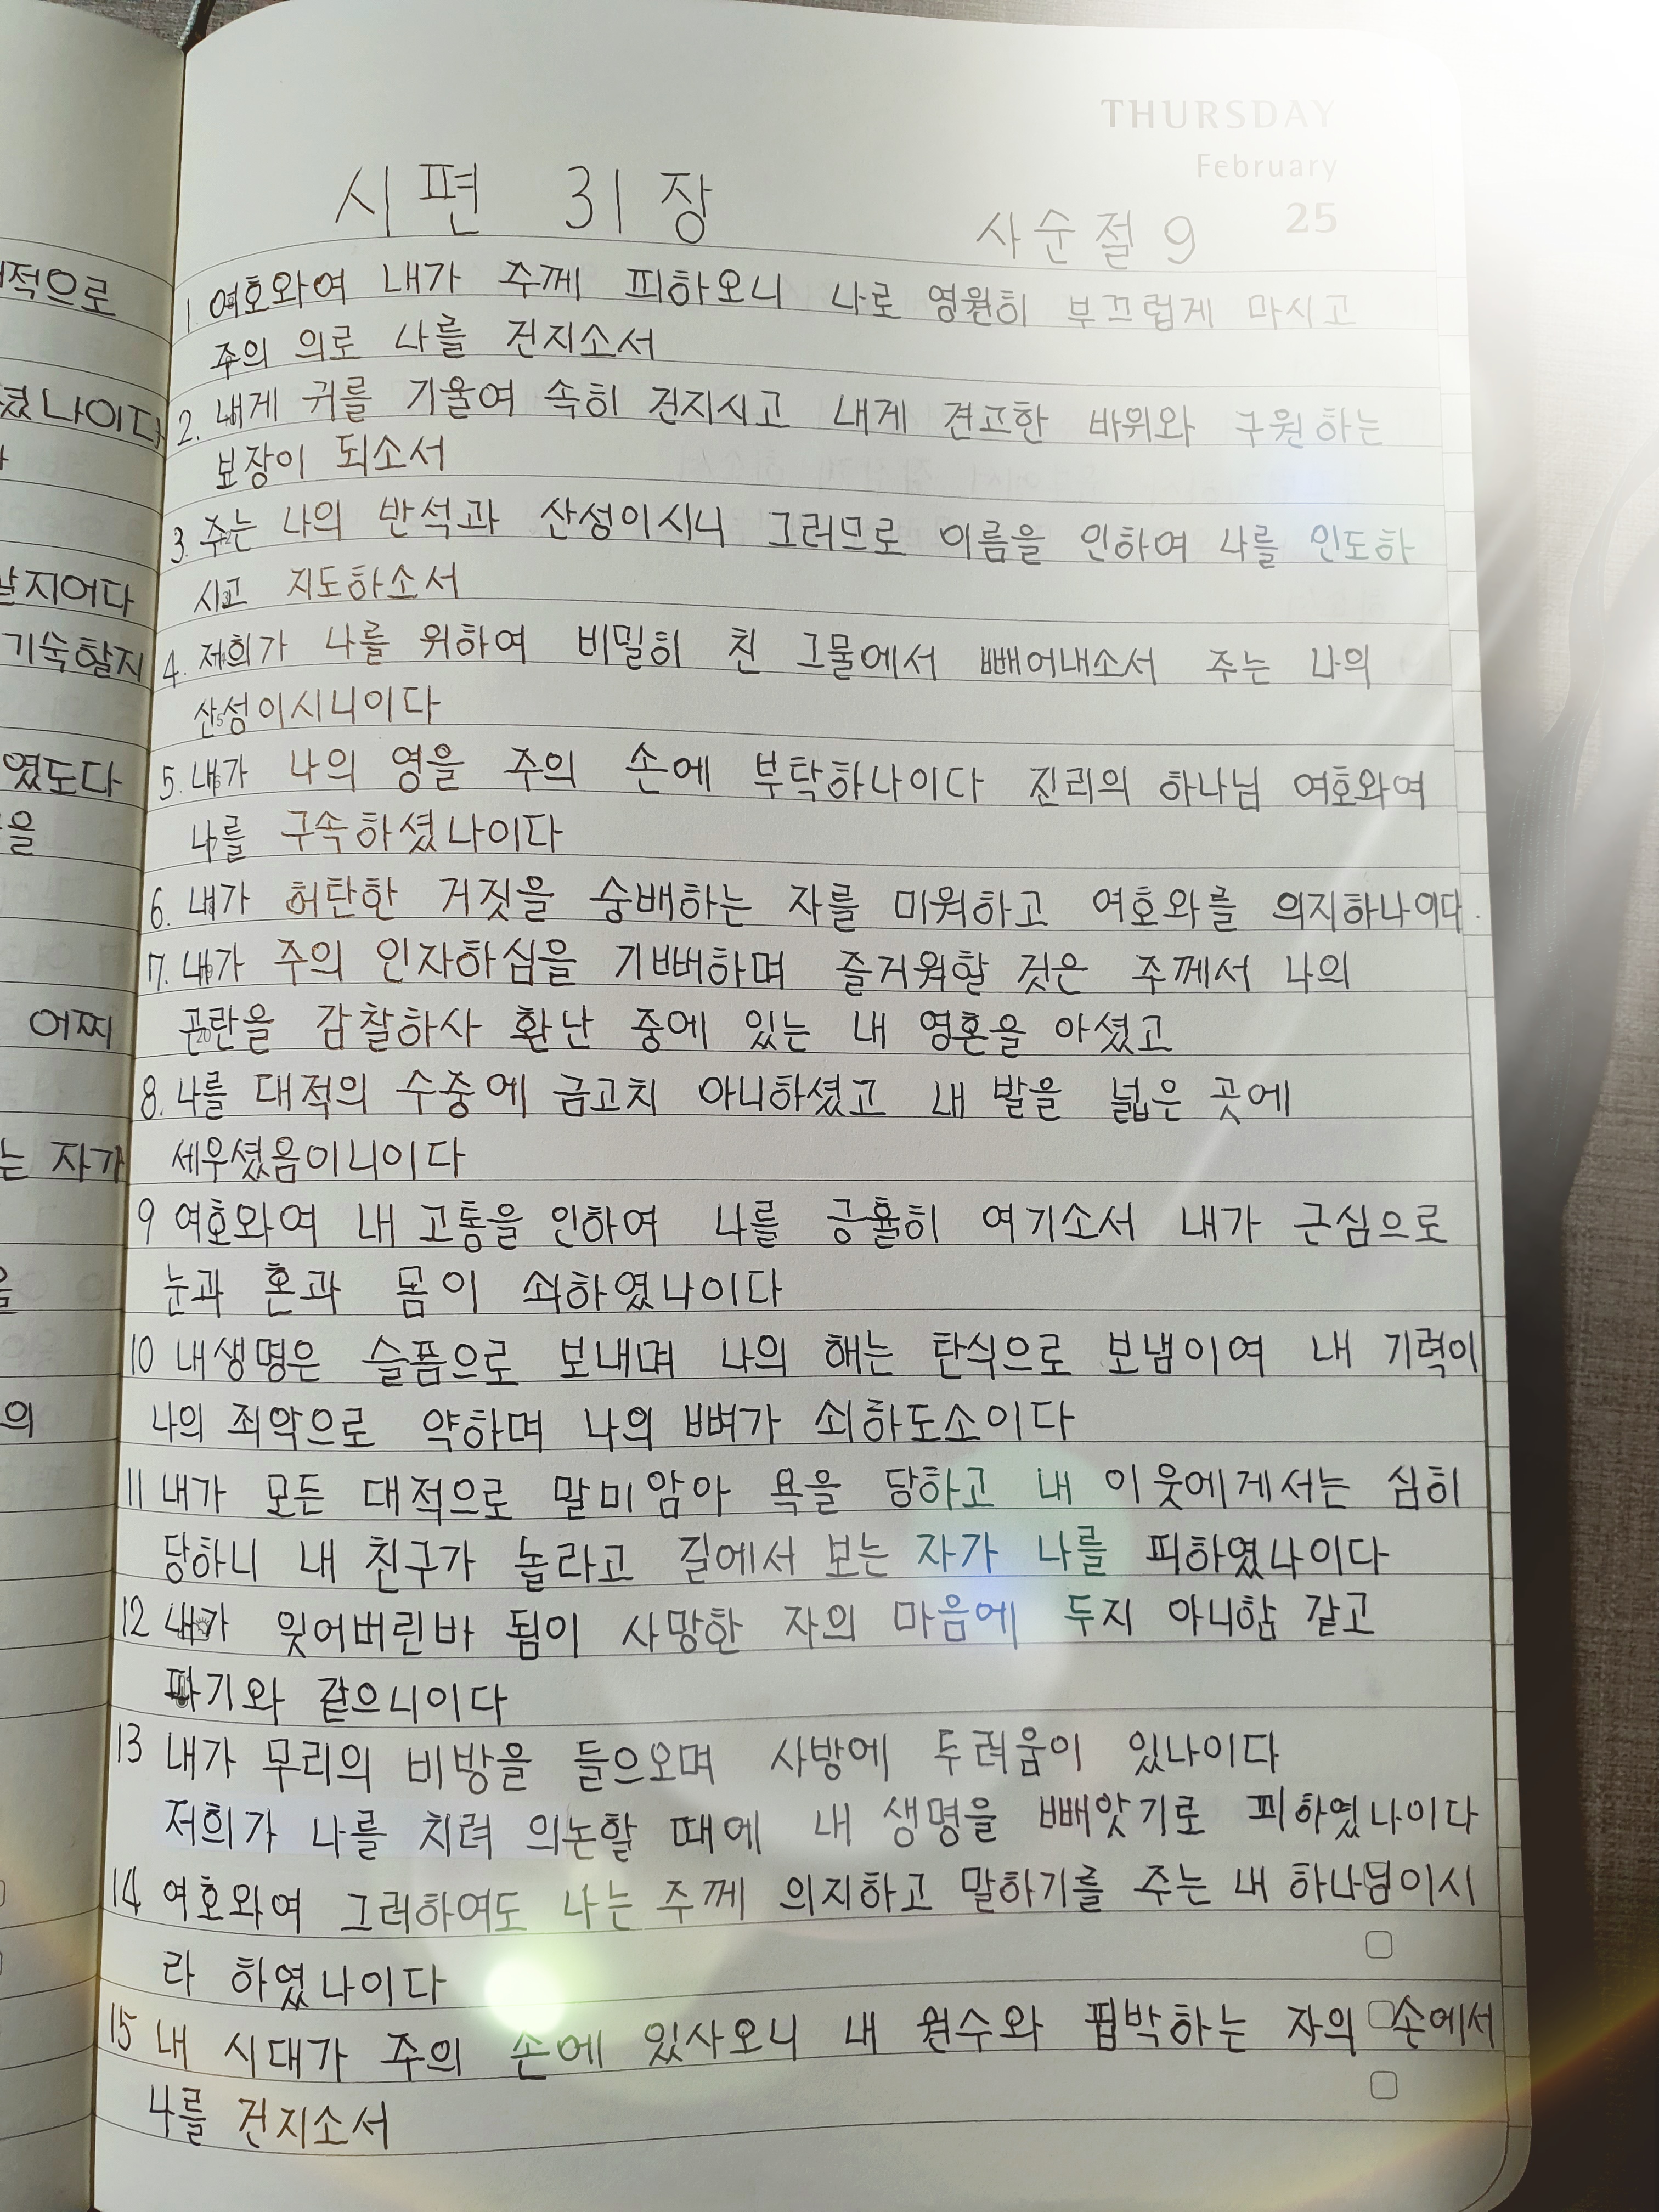 THURSDAY
February
25
시편 31장
사순절 9
1. 여호와여 내가 주께 피하오니 나로 영원히 부끄럽게 마시고
주의 의로 나를 건지소서
2. 내게 귀를 기울여 속히 건지시고 내게 견고한 바위와 구원하는
보장이 되소서
3. 주는 나의 반석과 산성이시니 그러므로 이름을 인하여 나를 인도하
시고 지도하소서
4. 저희가 나를 위하여 비밀히 친 그물에서 빼어내소서 주는 나의
산성이시니이다
5. 내가 나의 영을 주의 손에 부탁하나이다 진리의 하나님 여호와여
나를 구속하셨나이다
6. 내가 허탄한 거짓을 숭배하는 자를 미워하고 여호와를 의지하나이다.
7. 내가 주의 인자하심을 기뻐하며 즐거워할 것은 주께서 나의
곤란을 감찰하사 환난 중에 있는 내 영혼을 아셨고
8. 나를 대적의 수중에 금고치 아니하셨고 내 발을 넓은 곳에
세우셨음이니이다
9 여호와여 내 고통을 인하여 나를 긍휼히 여기소서 내가 근심으로
눈과 혼과 몸이 쇠하였나이다
10 내생명은 슬픔으로 보내며 나의 해는 탄식으로 보냄이여 내 기력이
나의 죄악으로 약하며 나의 뼈가 쇠하도소이다
11 내가 모든 대적으로 말미암아 욕을 당하고 내 이웃에게서는 심히
당하니 내 친구가 놀라고 길에서 보는 자가 나를 피하였나이다
12 내가 잊어버린바 됨이 사망한 자의 마음에 두지 아니함 같고
파기와 같으니이다
13 내가 무리의 비방을 들으오며 사방에 두려움이 있나이다
저희가 나를 치려 의논할 때에 내 생명을 빼앗기로 피하였나이다
14 여호와여 그러하여도 나는 주께 의지하고 말하기를 주는 내 하나님이시
라 하였나이다
15 내 시대가 주의 손에 있사오니 내 원수와 핍박하는 자의 손에서
나를 건지소서
적으로
셨나이다
지어다
기숙할지
였도다
을
어찌
는 자가
의